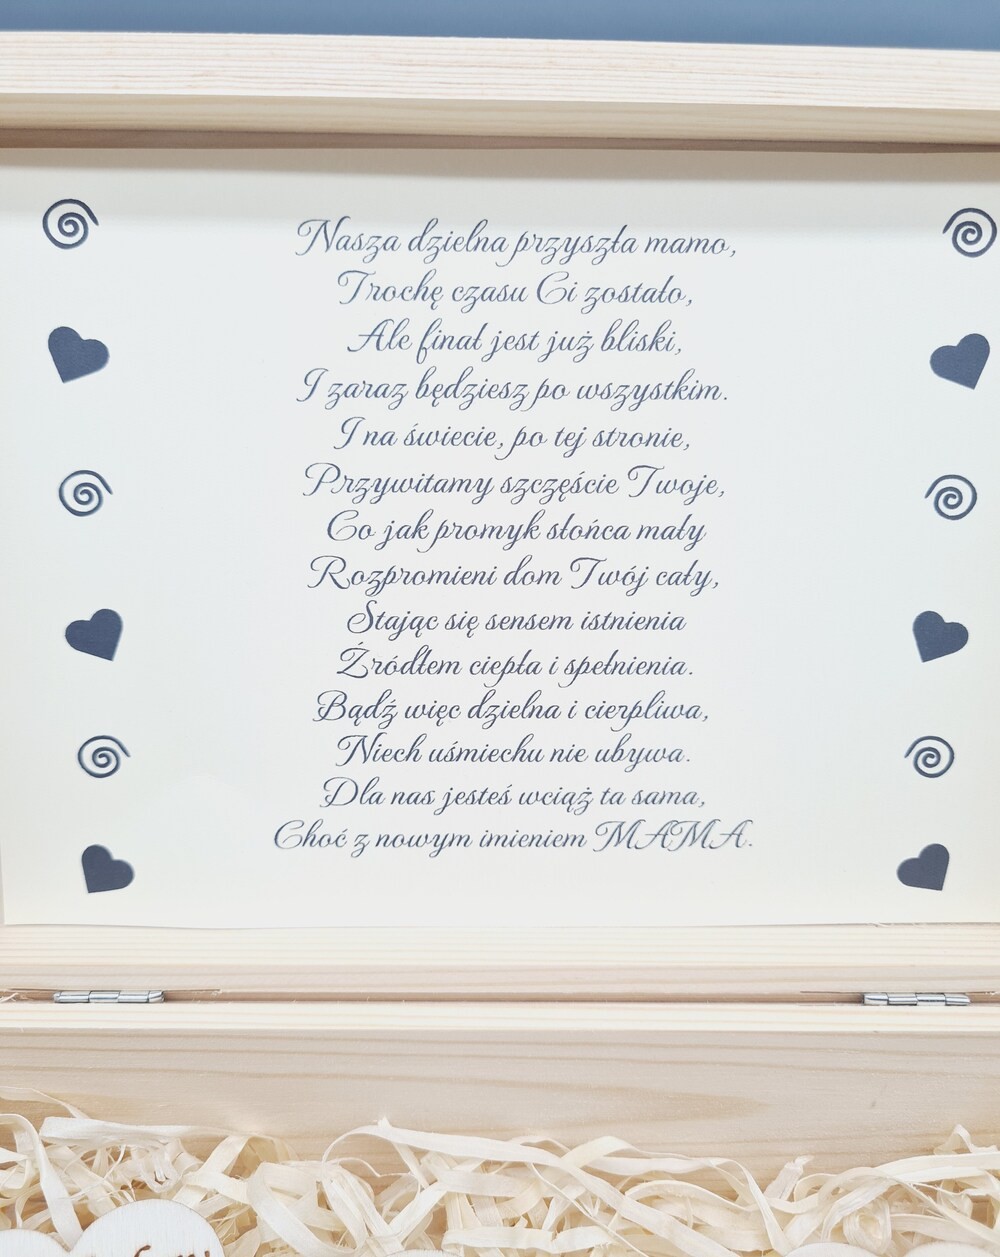 Nasza dzielna przyszła mamo,
Trochę czasu Ci zostało,
Ale finał jest już bliski,
I zaraz będziesz po wszystkim.
I na świecie, po tej stronie,
Przywitamy szczęście Twoje,
Co jak promyk słońca mały
Rozpromieni dom Twój cały,
Stając się sensem istnienia
Źródłem ciepła i spełnienia.
Bądź więc dzielna i cierpliwa,
Niech uśmiechu nie ubywa.
Dla nas jesteś wciąż ta sama,
Choć z nowym imieniem MAMA.